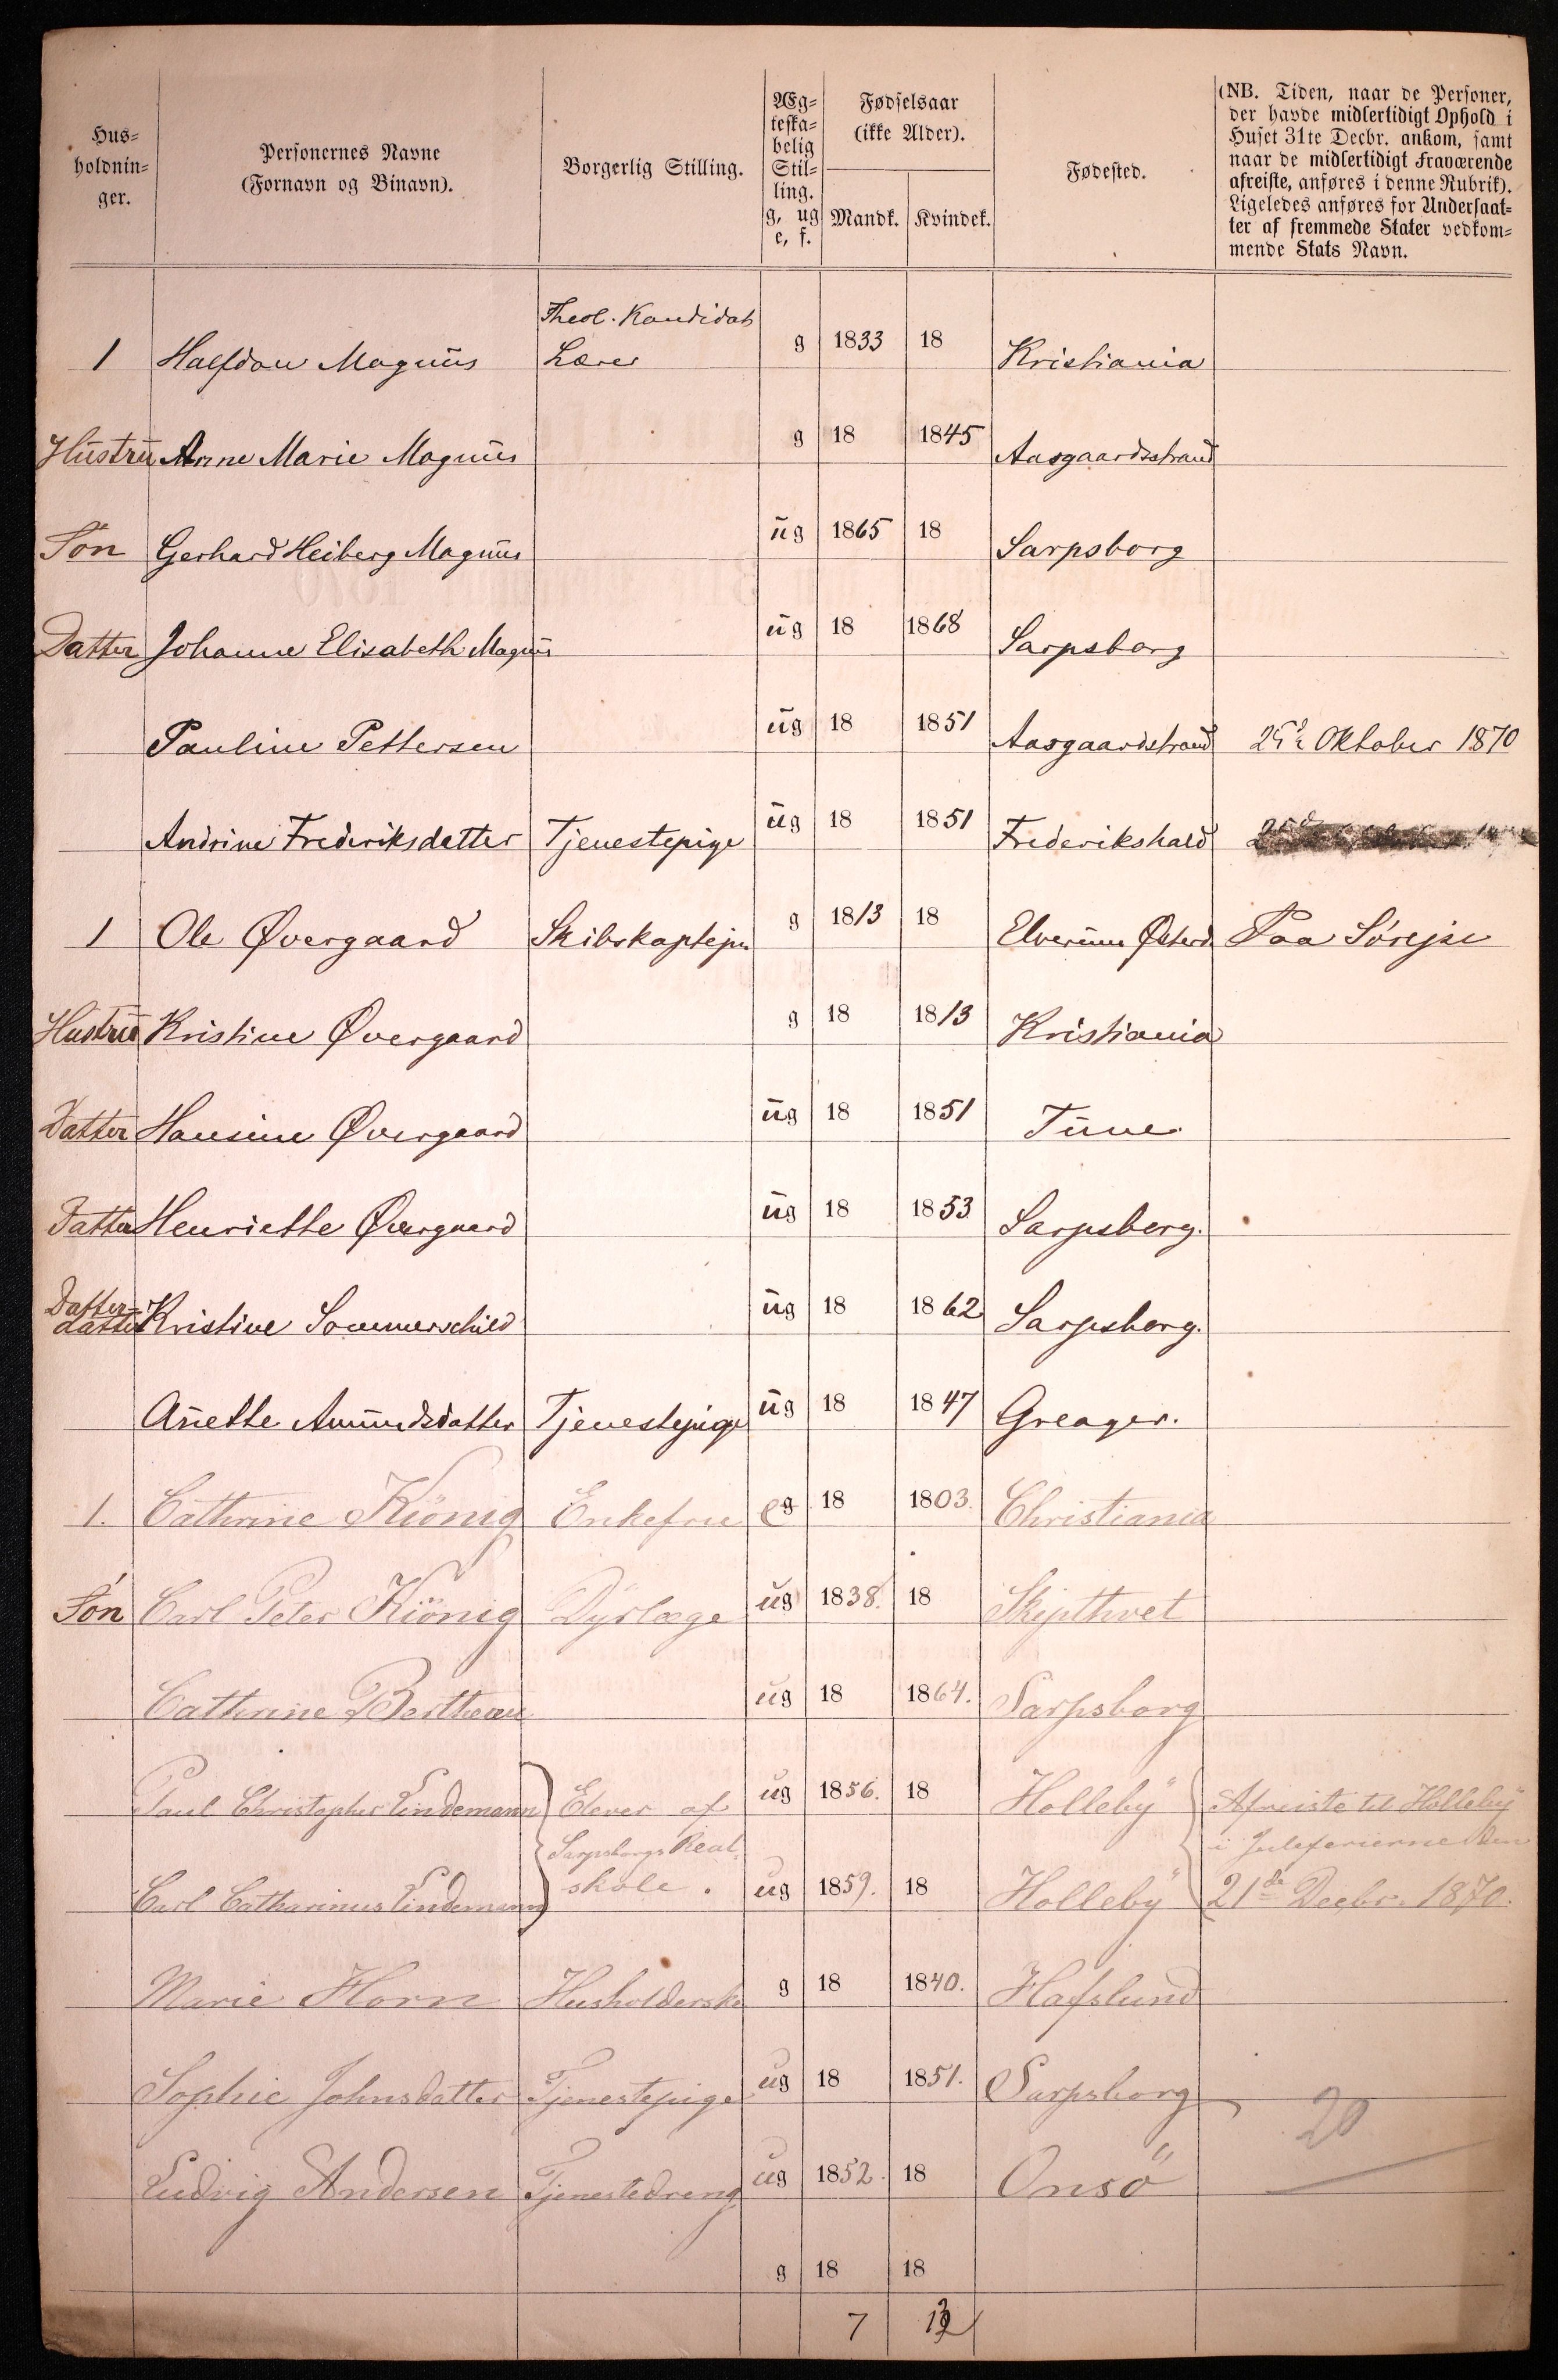 Hus-
holdnin-
ger.
Personernes Navne
(Fornavn og Binavn).
Borgerlig Stilling.
Æg-
teska-
belig
Stil-
ling.
g, ug
e, f.
Fødselsaar
(ikke Alder).
Mandk. Kvindek.
Fødested.
(NB. Tiden, naar de Personer,
der havde midlertidigt Ophold i
Huset 31te Decbr. ankom, samt
naar de midlertidigt Fraværende
afreiste, anføres i denne Rubrik).
Ligeledes anføres for Undersaat-
ter af fremmede Stater vedkom-
mende Stats Navn.
Theol. Kandidat
1 Halfdan Magnus Lærer g 1833 18 Kristiania
Hustru Anne Marie Magnus g 18 1845 Aasgaardsstrand
Søn Gerhard Heiberg Magnus ug 1865 18 Sarpsborg
Datter Johanne Elisabeth Magnus ug 18 1868 Sarpsborg
Pauline Pettersen ug 18 1851 Aasgaardstrand 25de Oktober 1870
Andrine Frederiksdatter Tjenestepige ug 18 1851 Frederikshald
1 Ole Øvergaard Skibskaptejn g 1813 18 Elverum Østerd. Paa Sørejse
Hustru Kristine Øvergaard g 18 1813 Kristiania
Datter Hansine Øvergaard ug 18 1851 Tune.
Datter Henriette Øvergaard ug 18 1853 Sarpsborg.
Datter-
datter Kristine Sommerschild ug 18 1862 Sarpsborg.
Anette Amundsdatter Tjenestepige ug 18 1847 Greager.
1. Cathrine König Enkefru eg 18 1803. Christiania
Søn Carl Peter König Dyrlæge ug 1838. 18 Skipthvet
Cathrine Bertheau ug 18 1864. Sarpsborg
Paul Christopher Lindemann Elever af ug 1856. 18 Holleby Afreiste til Holleby
Sarpsborgs Real- i Juleferierne den
Carl Catharinus Lindemann skole. ug 1859. 18 Holleby 21de Decbr. 1870.
Marie Horn Husholderske g 18 1840. Hafslund
Sophie Johnsdatter Tjenestepige ug 18 1851. Sarpsborg
20
Ludvig Andersen Tjenestedreng ug 1852. 18 Onsö
g 18 18
7